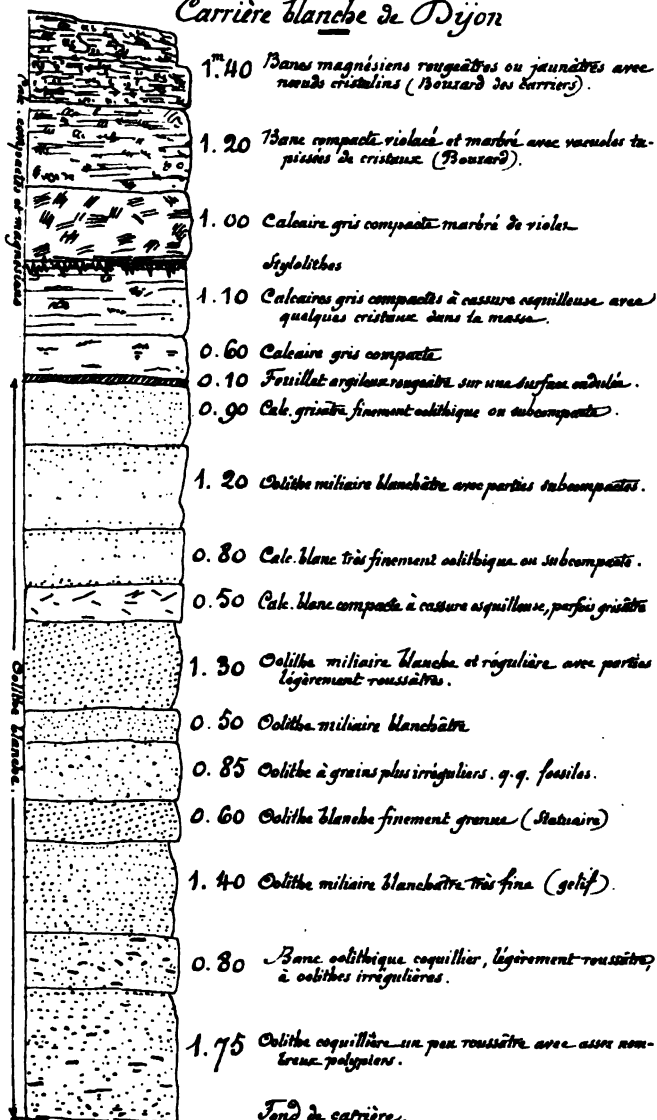 Carrière blanche de Dijon
1.m40 Bancs magnésiens rougeâtres ou jaunâtres avec
nœuds cristalins (Bouzard des carriers).
1.20 Banc compacte violacé et marbré avec vacuoles ta-
pissées de cristaux (Bouzard).
1.00 Calcaire gris compacte marbré de violet
Stylolithes
1.10 Calcaires gris compactes à cassure esquilleuse avec
quelques cristaux dans la masse.
0.60 Calcaire gris compacte
0.10 Feuillet argileux rougeâtre sur une surface ondulée.
0.90 Calc. grisâtre finement oolithique ou subcompacte.
1.20 Oolithe miliaire blanchâtre avec parties subcompactes.
0.80 Calc. blanc très finement oolithique ou subcompacte.
0.50 Calc. blanc compacte à cassure esquilleuse, parfois grisâtre
1.30 Oolithe miliaire blanche et régulière avec parties
légèrement roussâtres.
0.50 Oolithe miliaire blanchâtre
0.85 Oolithe à grains plus irréguliers. q.q. fossiles.
0.60 Oolithe blanche finement grenue (Statuaire)
1.40 Oolithe miliaire blanchatre très fine (gelif).
0.80 Banc oolithique coquillier, légèrement roussâtre,
à oolithes irrégulières.
1.75 Oolithe coquillière un peu roussâtre avec assez nom-
breux polypiers.
Fond de carrière.
compactes et magnésiens
Oolithe blanche.